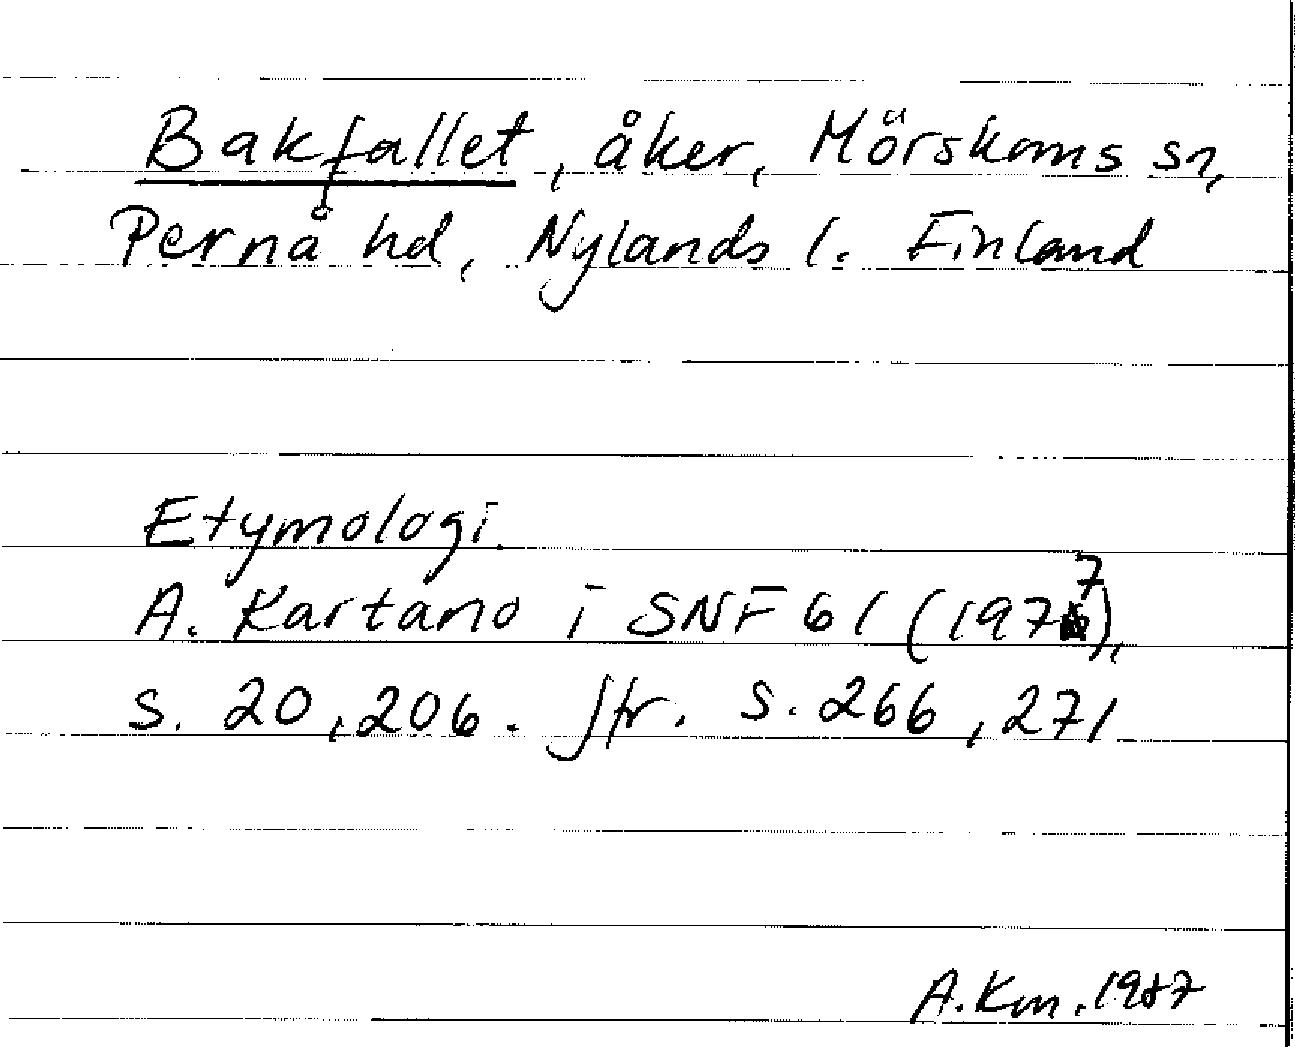 Bakfallet, åker, Mörskoms sn,
Pernå hd, Nylands l. Finland
Etymologi.
A. Kartano i SNF 61 (1977),
s. 20, 206. Jfr. s. 266, 271
A.Km. 1987